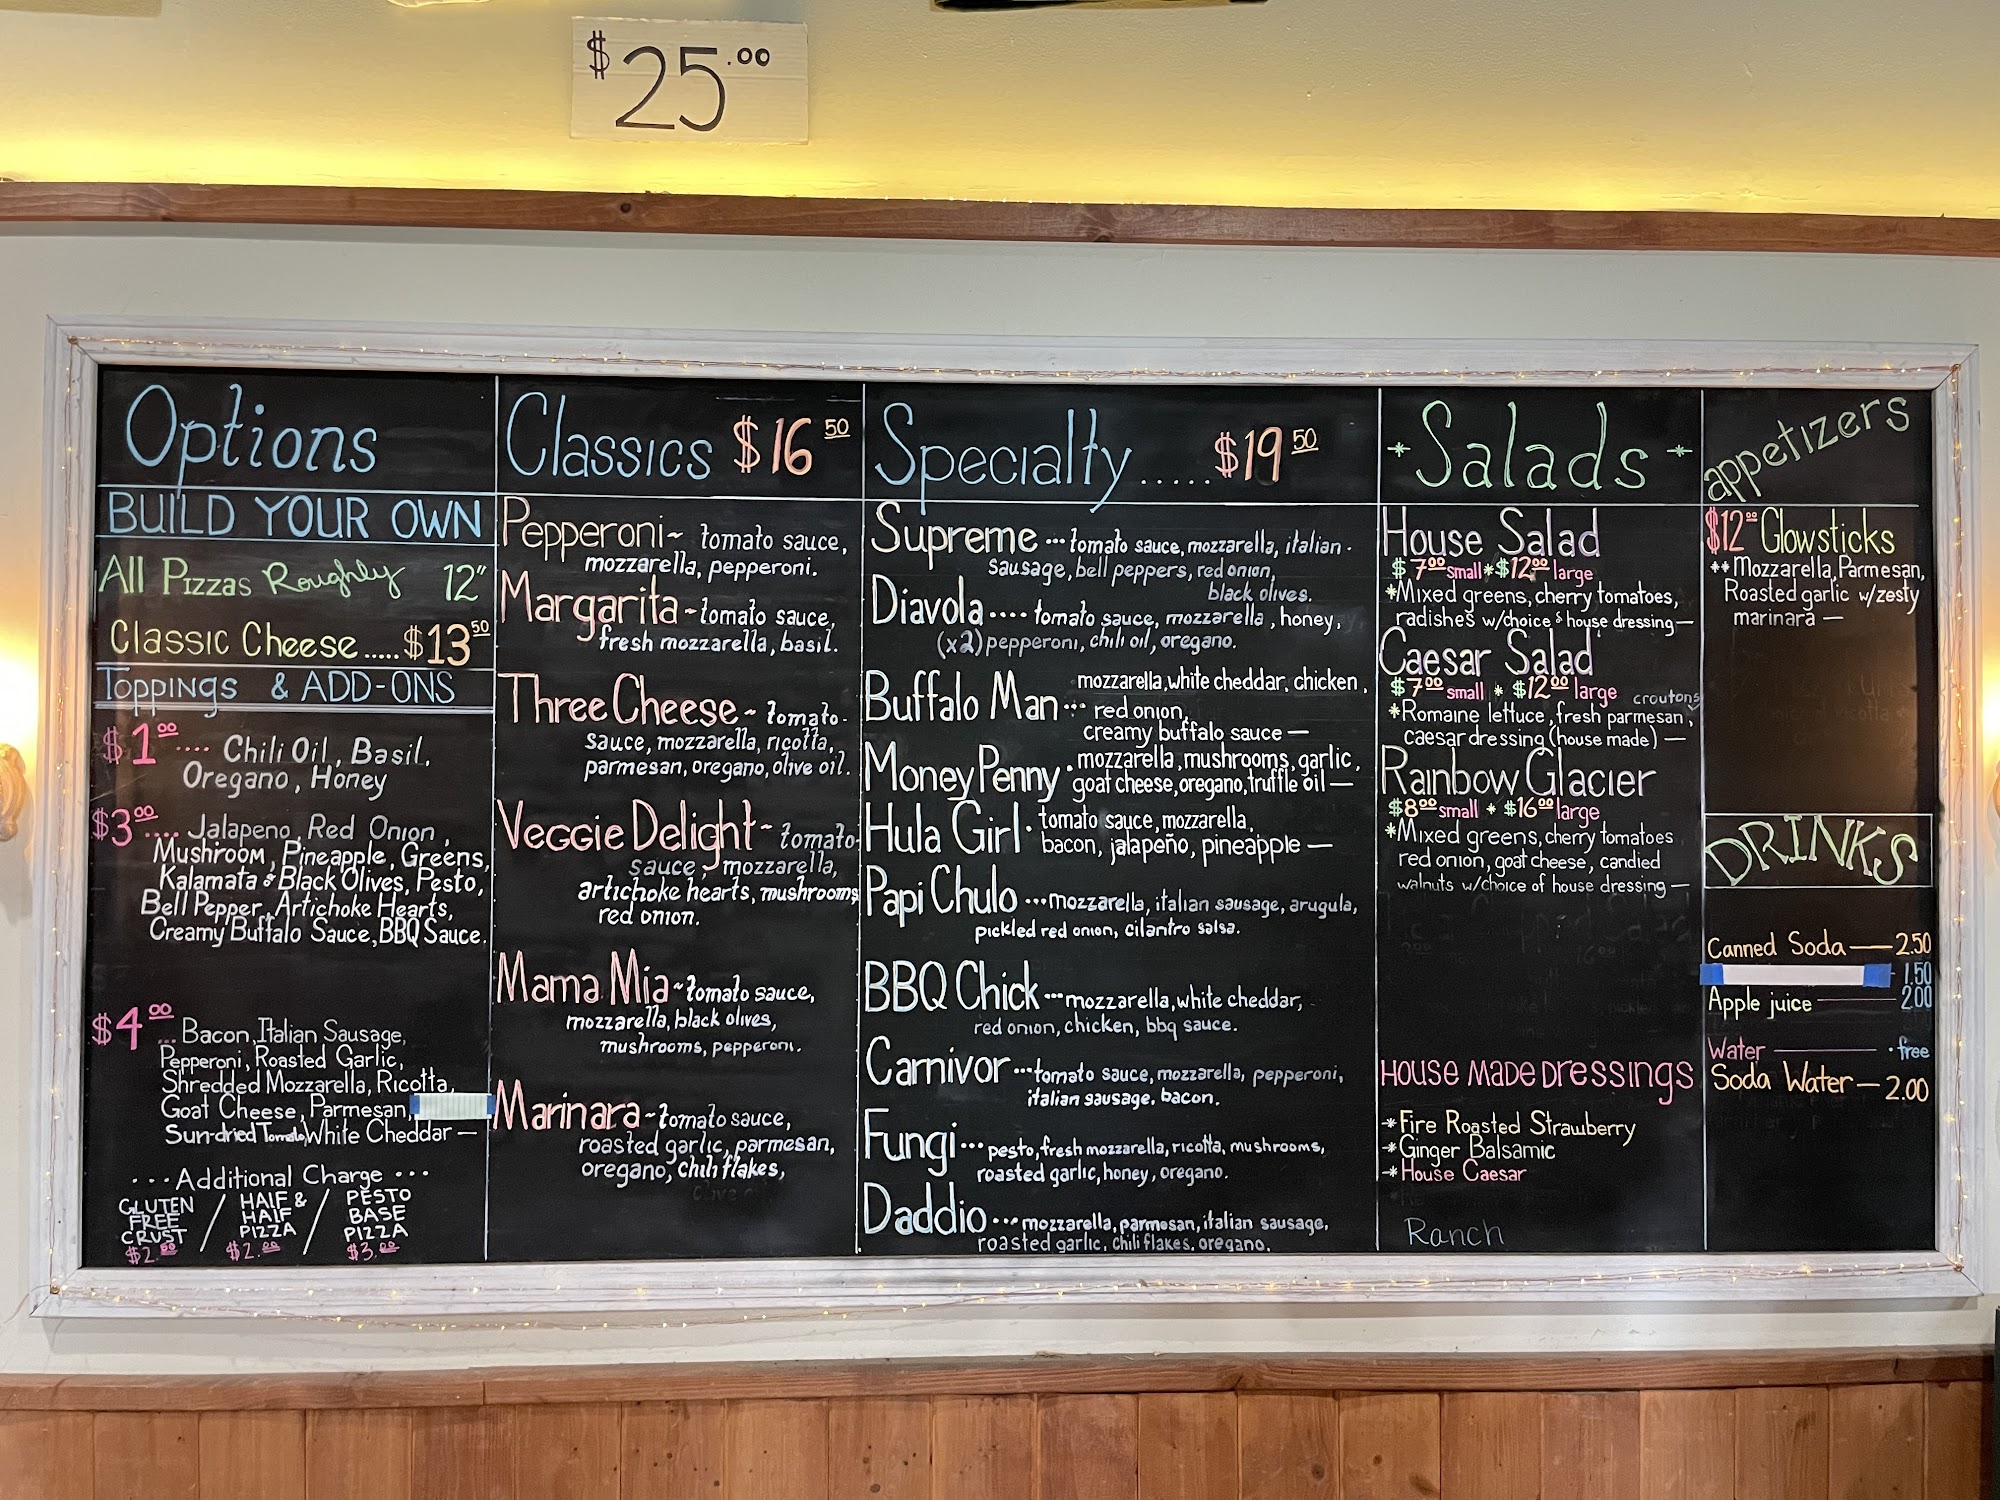 $25.00
Options
BUILD YOUR OWN
All Pizzas Roughly 12"
Classic Cheese.....$13.50
Toppings & ADD-ONS
$1.00.... Chili Oil, Basil,
Oregano, Honey
$3.00.... Jalapeno, Red Onion,
Mushroom, Pineapple, Greens,
Kalamata & Black Olives, Pesto,
Bell Pepper, Artichoke Hearts,
Creamy Buffalo Sauce, BBQ Sauce.
$4.00... Bacon, Italian Sausage,
Pepperoni, Roasted Garlic,
Shredded Mozzarella, Ricotta,
Goat Cheese, Parmesan,
Sun-dried Tomato, White Cheddar —
... Additional Charge ...
GLUTEN FREE CRUST $2.50 / HALF & HALF PIZZA $2.00 / PESTO BASE PIZZA $3.00
Classics $16.50
Pepperoni~ tomato sauce,
mozzarella, pepperoni.
Margarita~tomato sauce,
fresh mozzarella, basil.
Three Cheese~ tomato-
sauce, mozzarella, ricotta,
parmesan, oregano, olive oil.
Veggie Delight~ tomato-
sauce, mozzarella,
artichoke hearts, mushrooms
red onion.
Mama Mia~tomato sauce,
mozzarella, black olives,
mushrooms, pepperoni.
Marinara~tomato sauce,
roasted garlic, parmesan,
oregano, chili flakes,
Specialty.....$19.50
Supreme...tomato sauce, mozzarella, italian-
sausage, bell peppers, red onion,
black olives.
Diavola....tomato sauce, mozzarella, honey,
(x2) pepperoni, chili oil, oregano.
Buffalo Man...mozzarella, white cheddar, chicken,
red onion,
creamy buffalo sauce —
Money Penny·mozzarella, mushrooms, garlic,
goat cheese, oregano, truffle oil —
Hula Girl·tomato sauce, mozzarella,
bacon, jalapeño, pineapple —
Papi Chulo...mozzarella, italian sausage, arugula,
pickled red onion, cilantro salsa.
BBQ Chick...mozzarella, white cheddar,
red onion, chicken, bbq sauce.
Carnivor...tomato sauce, mozzarella, pepperoni,
italian sausage, bacon.
Fungi...pesto, fresh mozzarella, ricotta, mushrooms,
roasted garlic, honey, oregano.
Daddio...mozzarella, parmesan, italian sausage,
roasted garlic, chili flakes, oregano.
*Salads*
House Salad
$7.00 small*$12.00 large
*Mixed greens, cherry tomatoes,
radishes w/choice & house dressing—
Caesar Salad
$7.00 small * $12.00 large
croutons
*Romaine lettuce, fresh parmesan,
caesar dressing (house made) —
Rainbow Glacier
$8.00 small * $16.00 large
*Mixed greens, cherry tomatoes
red onion, goat cheese, candied
walnuts w/choice of house dressing —
HOUSE MADE DRESSINGS
*Fire Roasted Strawberry
*Ginger Balsamic
*House Caesar
Ranch
appetizers
$12.00 Glowsticks
**Mozzarella, Parmesan,
Roasted garlic w/zesty
marinara —
DRINKS
Canned Soda — 2.50
1.50
Apple juice — 2.00
Water — ·free
Soda Water — 2.00